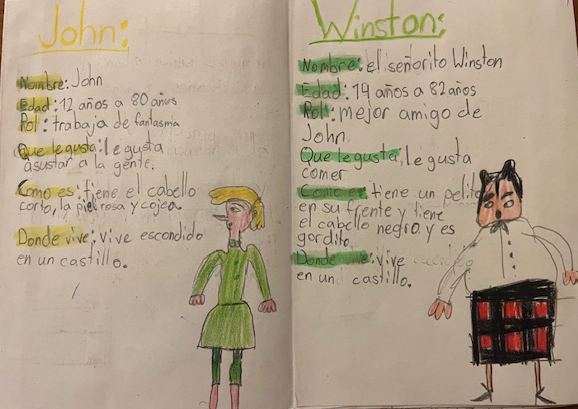 John:
Nombre: John
Edad: 12 años a 80 años
Rol: trabaja de fantasma
Que le gusta: le gusta
asustar a la gente.
Como es: tiene el cabello
corto, la piel rosa y cojea.
Donde vive: vive escondido
en un castillo.
Winston:
Nombre: el señorito Winston
Edad: 14 años a 82 años
Rol: mejor amigo de
John.
Que le gusta, le gusta
comer
Como es: tiene un pelito
en su frente y tiene
el cabello negro y es
gordito.
Donde vive: vive escondido
en un castillo.